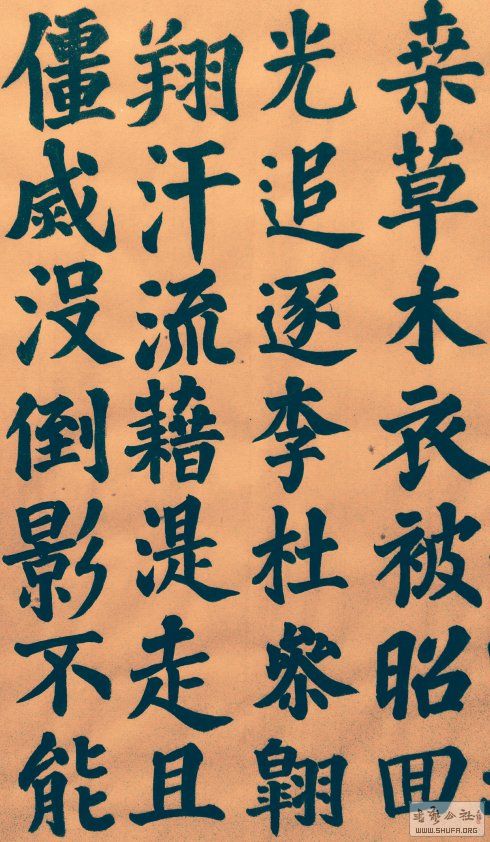 桒草木衣被昭回
光追逐李杜參翱
翔汗流藉湜走且
僵滅没倒影不能
WWW.SHUFA.ORG